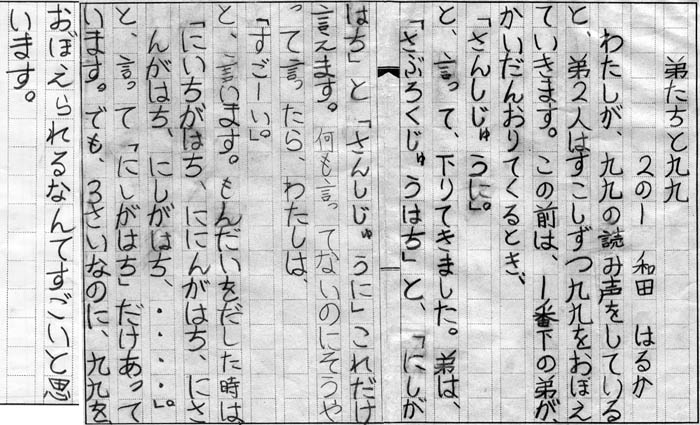 弟たちと九九
２の１　和田　はるか
わたしが、九九の読み声をしている
と、弟２人はすこしずつ九九をおぼえ
ていきます。この前は、１番下の弟が、
かいだんおりてくるとき、
「さんしじゅうに。」
と、言って、下りてきました。弟は、
「さぶろくじゅうはち」と、「にしが
はち」と「さんしじゅうに」これだけ
言えます。何も言ってないのにそうや
って言ったら、わたしは、
「すごーい。」
と、言います。もんだいをだした時は、
「にいちがはち、ににんがはち、にさ
んがはち、にしがはち、・・・・。」
と、言って「にしがはち」だけあって
います。でも、３さいなのに、九九を
おぼえられるなんてすごいと思
います。